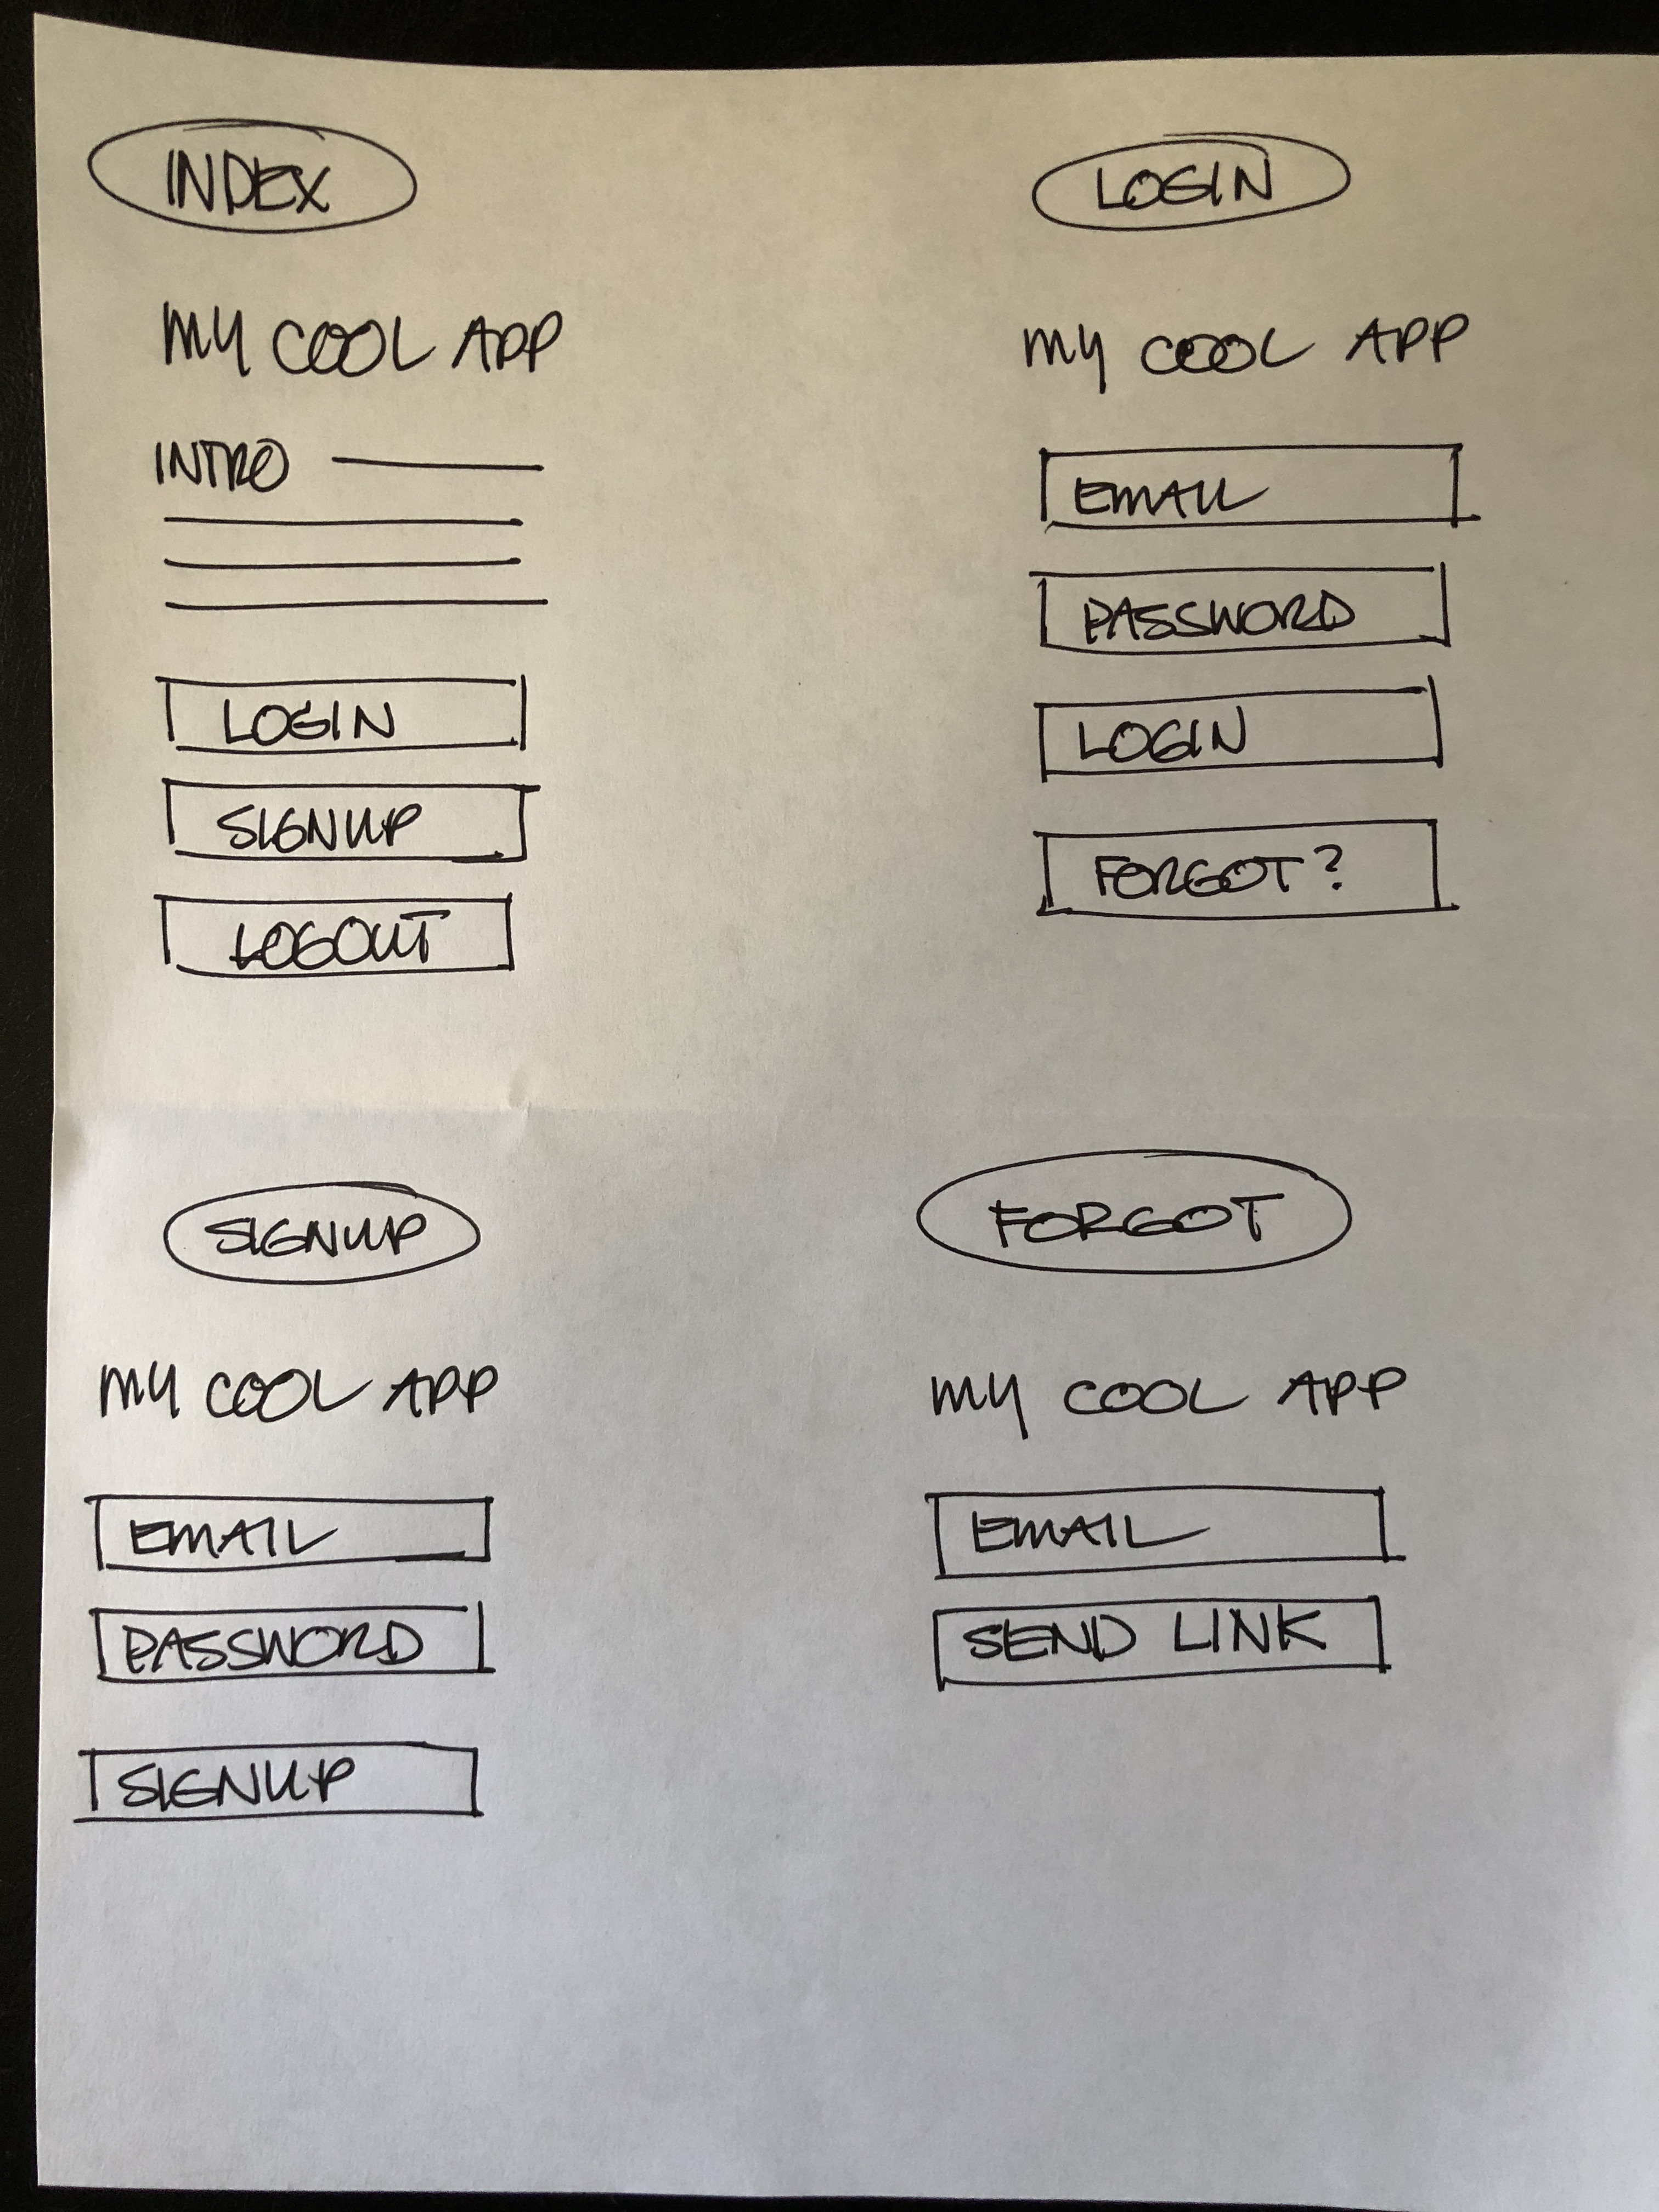 INDEX
MY COOL APP
INTRO
LOGIN
SIGNUP
LOGOUT
LOGIN
MY COOL APP
EMAIL
PASSWORD
LOGIN
FORGOT?
SIGNUP
MY COOL APP
EMAIL
PASSWORD
SIGNUP
FORGOT
MY COOL APP
EMAIL
SEND LINK